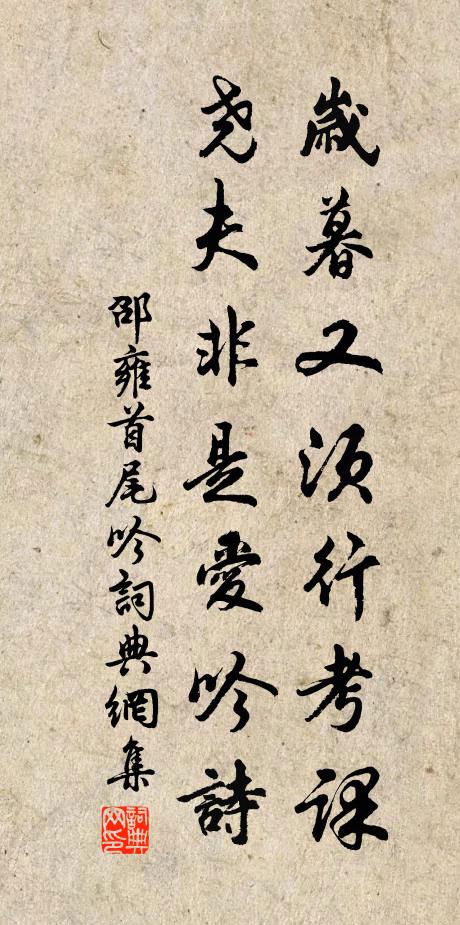 歲暮又須行考課
堯夫非是愛吟詩
邵雍首尾吟詞典網集
詞典
网印